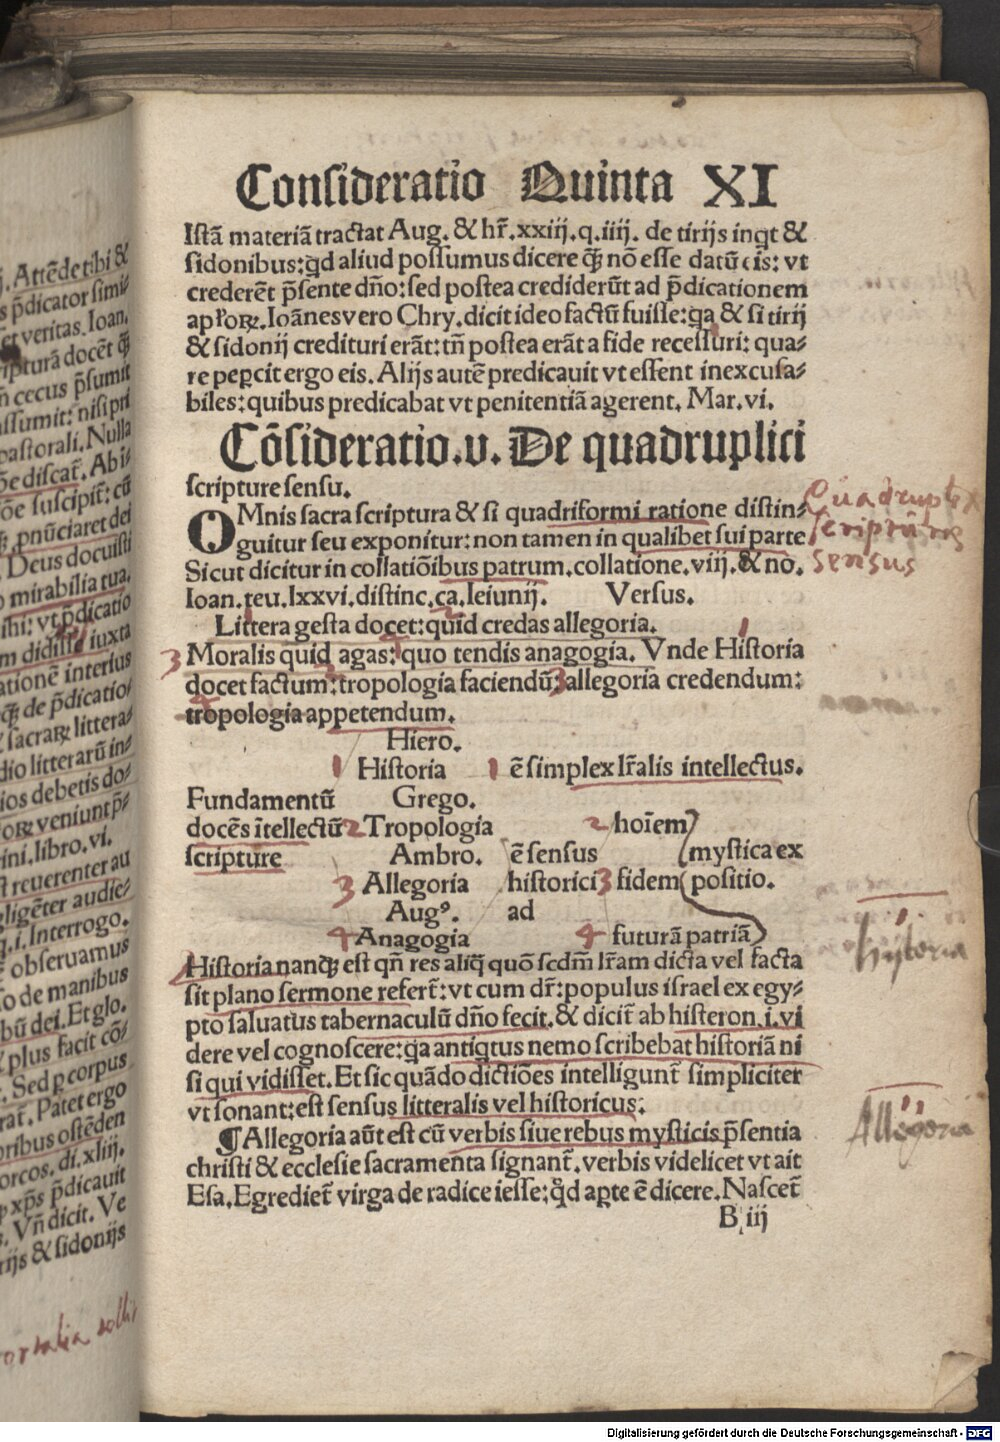 j. Attēde tibi &
s p̄dicator simi-
et veritas. Ioan.
riptura docēt q̄
n cecus p̄sumit
assumit: nisi pri
pastorali. Nulla
ōe discat̄. Abi-
ōe suscipit̄: cū
pnūciaret dei
. Deus docuisti
o mirabilia tua.
ihi: vt p̄dicatio
m didisse iuxta
atione interius
q̄ de p̄dicatio-
sacraꝝ littera-
dio litterarū in-
ios debetis do-
orꝝ veniunt p̄-
ini. libro. vi.
st reuerenter au
gligēter audie-
q. i. Interrogo.
ē obseruamus
o de manibus
bū dei. Et glo.
plus facit cō-
. Sed ꝑ corpus
rat̄. Patet ergo
oribus ostēden
orcos. di. xliij.
xp̄s p̄dicauit
s. Vn̄ dicit. Ve
rijs & sidonijs
Consideratio Quinta XI
Istā materiā tractat Aug. & hr̄. xxiij. q. iiij. de tirijs inqt &
sidonibus: qd aliud possumus dicere q̄ nō esse datū eis: vt
crederēt p̄sente dn̄o: sed postea crediderūt ad p̄dicationem
aplōꝝ. Ioānes vero Chry. dicit ideo factū fuisse: qa & si tirij
& sidonij credituri erāt: tn̄ postea erāt a fide recessuri: qua-
re peꝑcit ergo eis. Alijs autē predicauit vt essent inexcusa-
biles: quibus predicabat vt penitentiā agerent. Mar. vi.
Cōsideratio. v. De quadruplici
scripture sensu.
OMnis sacra scriptura & si quadriformi ratione distin-
guitur seu exponitur: non tamen in qualibet sui parte
Sicut dicitur in collatiōibus patrum. collatione. viij. & no.
Ioan. teu. lxxvi. distinc. ca. Ieiunij. Versus.
Quadruplex
scripturę
sensus
Littera gesta docet: quid credas allegoria.
3 Moralis quid agas: quo tendis anagogia. Vnde Historia
docet factum: tropologia faciendū: allegoria credendum:
tropologia appetendum.
Hiero.
1 Historia 1 ē simplex lr̄alis intellectus.
Fundamentū Grego.
docēs ītellectū 2 Tropologia 2 hoīem
scripture Ambro. ē sensus mystica ex
3 Allegoria historici 3 fidem positio.
Augꝰ. ad
4 Anagogia 4 futurā patriā
Historia nanqꝫ est qn̄ res aliq̄ quō scdm̄ lr̄am dicta vel facta
sit plano sermone refert̄: vt cum dr̄: populus israel ex egy-
pto saluatus tabernaculū dn̄o fecit. & dicit̄ ab histeron. i. vi
dere vel cognoscere: qa antiqtus nemo scribebat historiā ni
si qui vidisset. Et sic quādo dictiōes intelligunt̄ simpliciter
vt sonant: est sensus litteralis vel historicus.
¶ Allegoria aūt est cū verbis siue rebus mysticis p̄sentia
christi & ecclesie sacramenta signant̄. verbis videlicet vt ait
Esa. Egrediet̄ virga de radice iesse: qd apte ē dicere. Nascet̄
B iij
1.
hijtoria
Allegoria
Digitalisierung gefördert durch die Deutsche Forschungsgemeinschaft - DFG